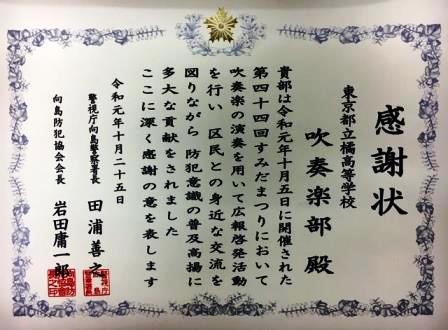 感謝状
東京都立橘高等学校
吹奏楽部 殿
貴部は令和元年十月五日に開催された
第四十四回すみだまつりにおいて
吹奏楽の演奏を用いて広報啓発活動
を行い 区民との身近な交流を
図りながら 防犯意識の普及高揚に
多大な貢献をされました
ここに深く感謝の意を表します
令和元年十月二十五日
警視庁向島警察署長 田浦善之
向島防犯協会会長 岩田庸一郎